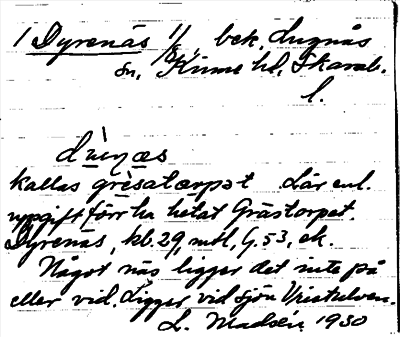 1 Dyrenäs 1/8 bek. Lugnås
sn, Kinne hd, Skarab.
l.
dùenæs
kallas grèsatærpət Lär enl.
uppgift förr ha hetat Gråstorpet.
Dyrenäs, kb. 29, mtl, G. 53, ek.
Något näs ligger det inte på
eller vid. Ligger vid sjön
L. Madsén 1930